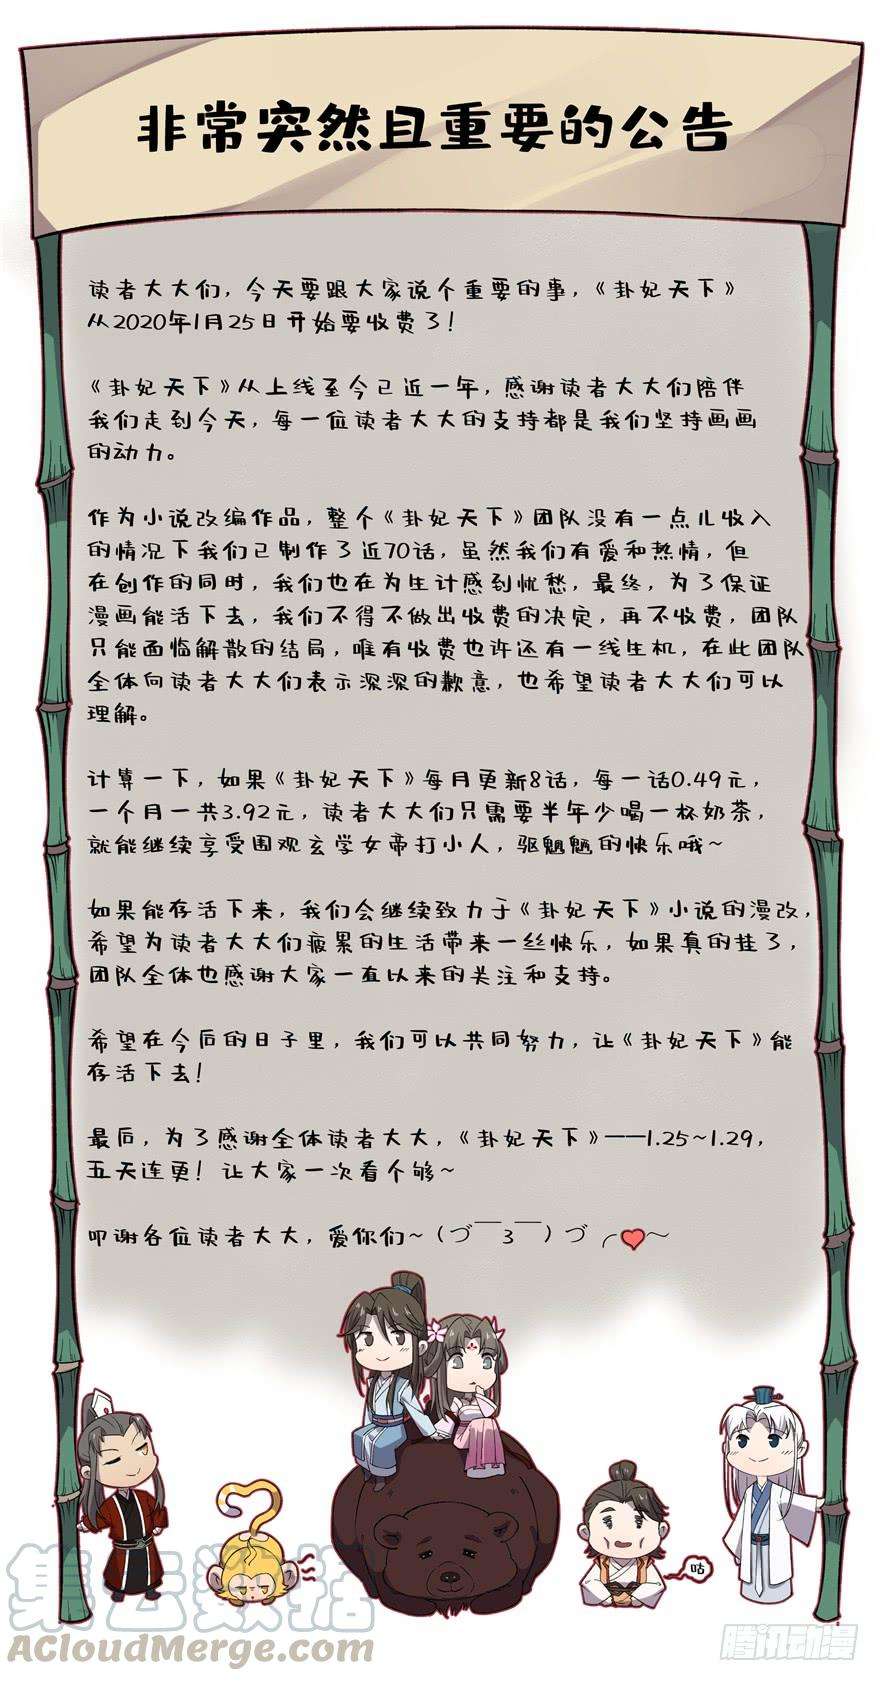 非常突然且重要的公告
读者大大们，今天要跟大家说个重要的事，《卦妃天下》
从2020年1月25日开始要收费了！
《卦妃天下》从上线至今已近一年，感谢读者大大们陪伴
我们走到今天，每一位读者大大的支持都是我们坚持画画
的动力。
作为小说改编作品，整个《卦妃天下》团队没有一点儿收入
的情况下我们已制作了近70话，虽然我们有爱和热情，但
在创作的同时，我们也在为生计感到忧愁，最终，为了保证
漫画能活下去，我们不得不做出收费的决定，再不收费，团队
只能面临解散的结局，唯有收费也许还有一线生机，在此团队
全体向读者大大们表示深深的歉意，也希望读者大大们可以
理解。
计算一下，如果《卦妃天下》每月更新8话，每一话0.49元，
一个月一共3.92元，读者大大们只需要半年少喝一杯奶茶，
就能继续享受围观玄学女帝打小人，驱魍魉的快乐哦~
如果能存活下来，我们会继续致力于《卦妃天下》小说的漫改，
希望为读者大大们疲累的生活带来一丝快乐，如果真的挂了，
团队全体也感谢大家一直以来的关注和支持。
希望在今后的日子里，我们可以共同努力，让《卦妃天下》能
存活下去！
最后，为了感谢全体读者大大，《卦妃天下》——1.25~1.29，
五天连更！让大家一次看个够~
叩谢各位读者大大，爱你们~（づ￣3￣）づ╭❤~
咕
集云数据
ACloudMerge.com
腾讯动漫